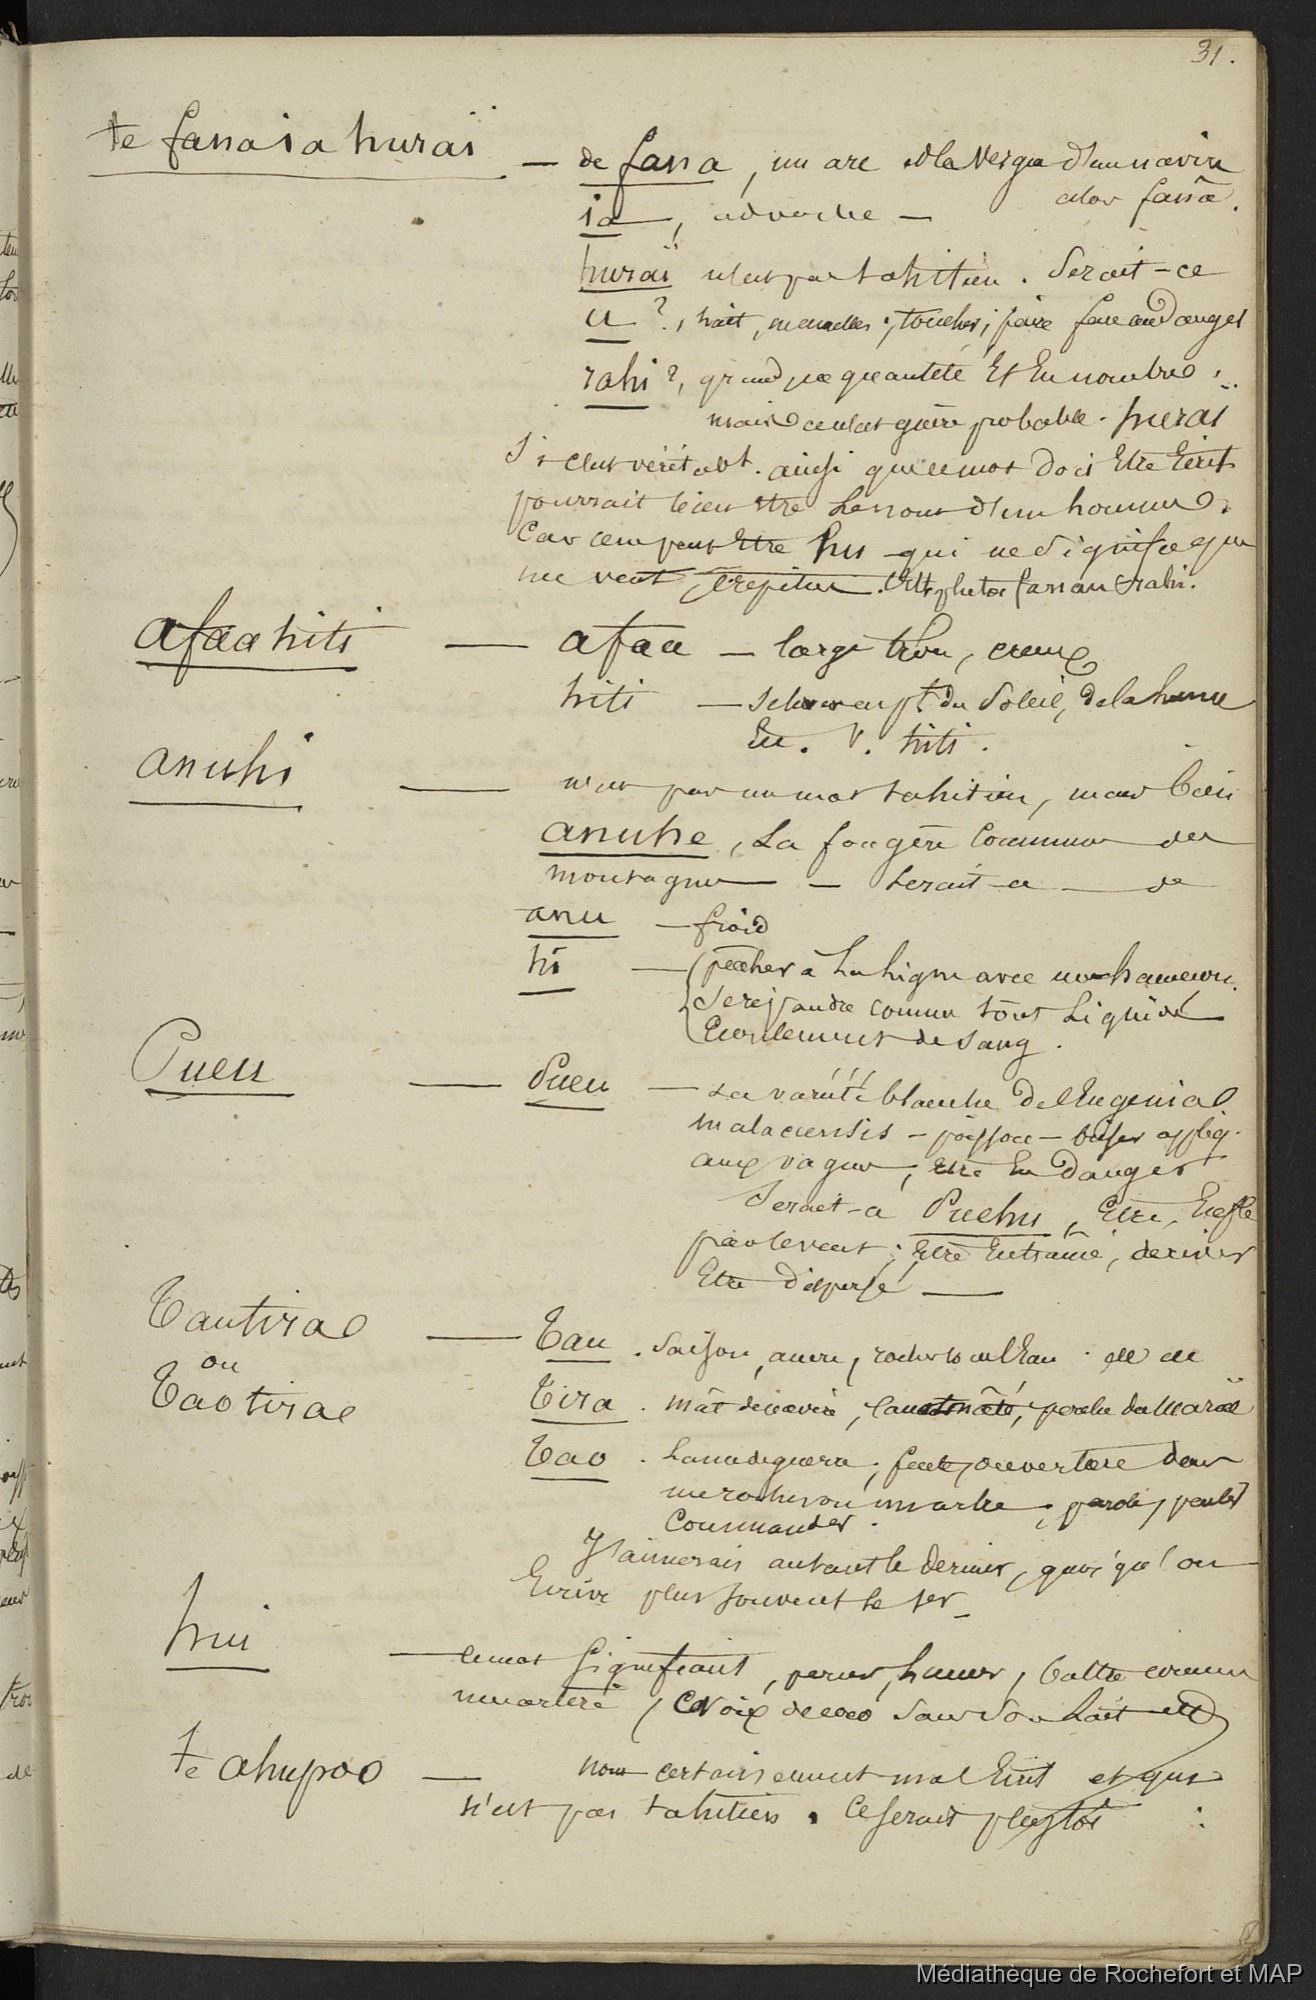 31.
te fanaia huraï — de fana, un arc et la vergue d'un navire
alors fanā.
ia, adverbe —
huraï n'est pas tahitien. Serait-ce
u ?, lait, mamelles ; toucher ; faire face au danger
rahi ?, grand par quantité et en nombre ;
mais ce n'est guère probable. huraï
si c'est véritabt. ainsi que ce mot doit être écrit
pourrait bien être le nom d'un homme.
Car ce ne peut être hu qui ne signifie que
un vent crepitus. C'est plutôt fanau rahi.
afaahiti — afaa — large trou, creux
hiti — se lever en pt. du Soleil, de la lune
En. V. hiti.
anuhi — n'est pas un mot tahitien, mais bien
anuhe, la fougère commune des
montagnes — Serait-ce — de
anu — froid
hi — pêcher à la ligne avec un hameçon.
Se répandre comme tout liquide
Ecoulement de sang.
Pueu — Pueu — La variété blanche de l'Eugenia
malacensis — poisson — briser appliq.
aux vagues ; être en danger
Serait-ce Puehu, être, Enflé
par le vent ; être entraîné, deriver
être dispersé —
Tautira — Tau. Saison, ancre, rocher sous l'eau. etc etc
ou
Taotira
Tira. mât de navire, perche du Maraë
Tao. Lance de guerre ; fente, ouverture dans
un rocher ou un arbre ; parole, parler
Commander.
J'aimerais autant le dernier, quoi qu'on
Ecrive plus souvent le 1er —
hui — ce mot Signifiant, percer, lancer, battre comme
une artère, (Noix de coco sans son lait etc)
te ahupoo — nom certainement mal Ecrit et qui
n'est pas tahitien. Ce serait plutôt :
Médiathèque de Rochefort et MAP